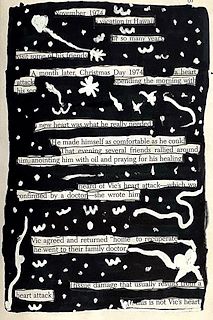 November 1974
vacation in Hawaii
of so many years
visit some of his friends
A month later, Christmas Day 1974 a heart
attack spending the morning with
his son
new heart was what he really needed
He made himself as comfortable as he could
That evening several friends rallied around
him, anointing him with oil and praying for his healing
heard of Vic's heart attack—which was
confirmed by a doctor—she wrote him
Vic agreed and returned "home" to recuperate
he went to their family doctor
tissue damage that usually results from a
heart attack
this is not Vic's heart